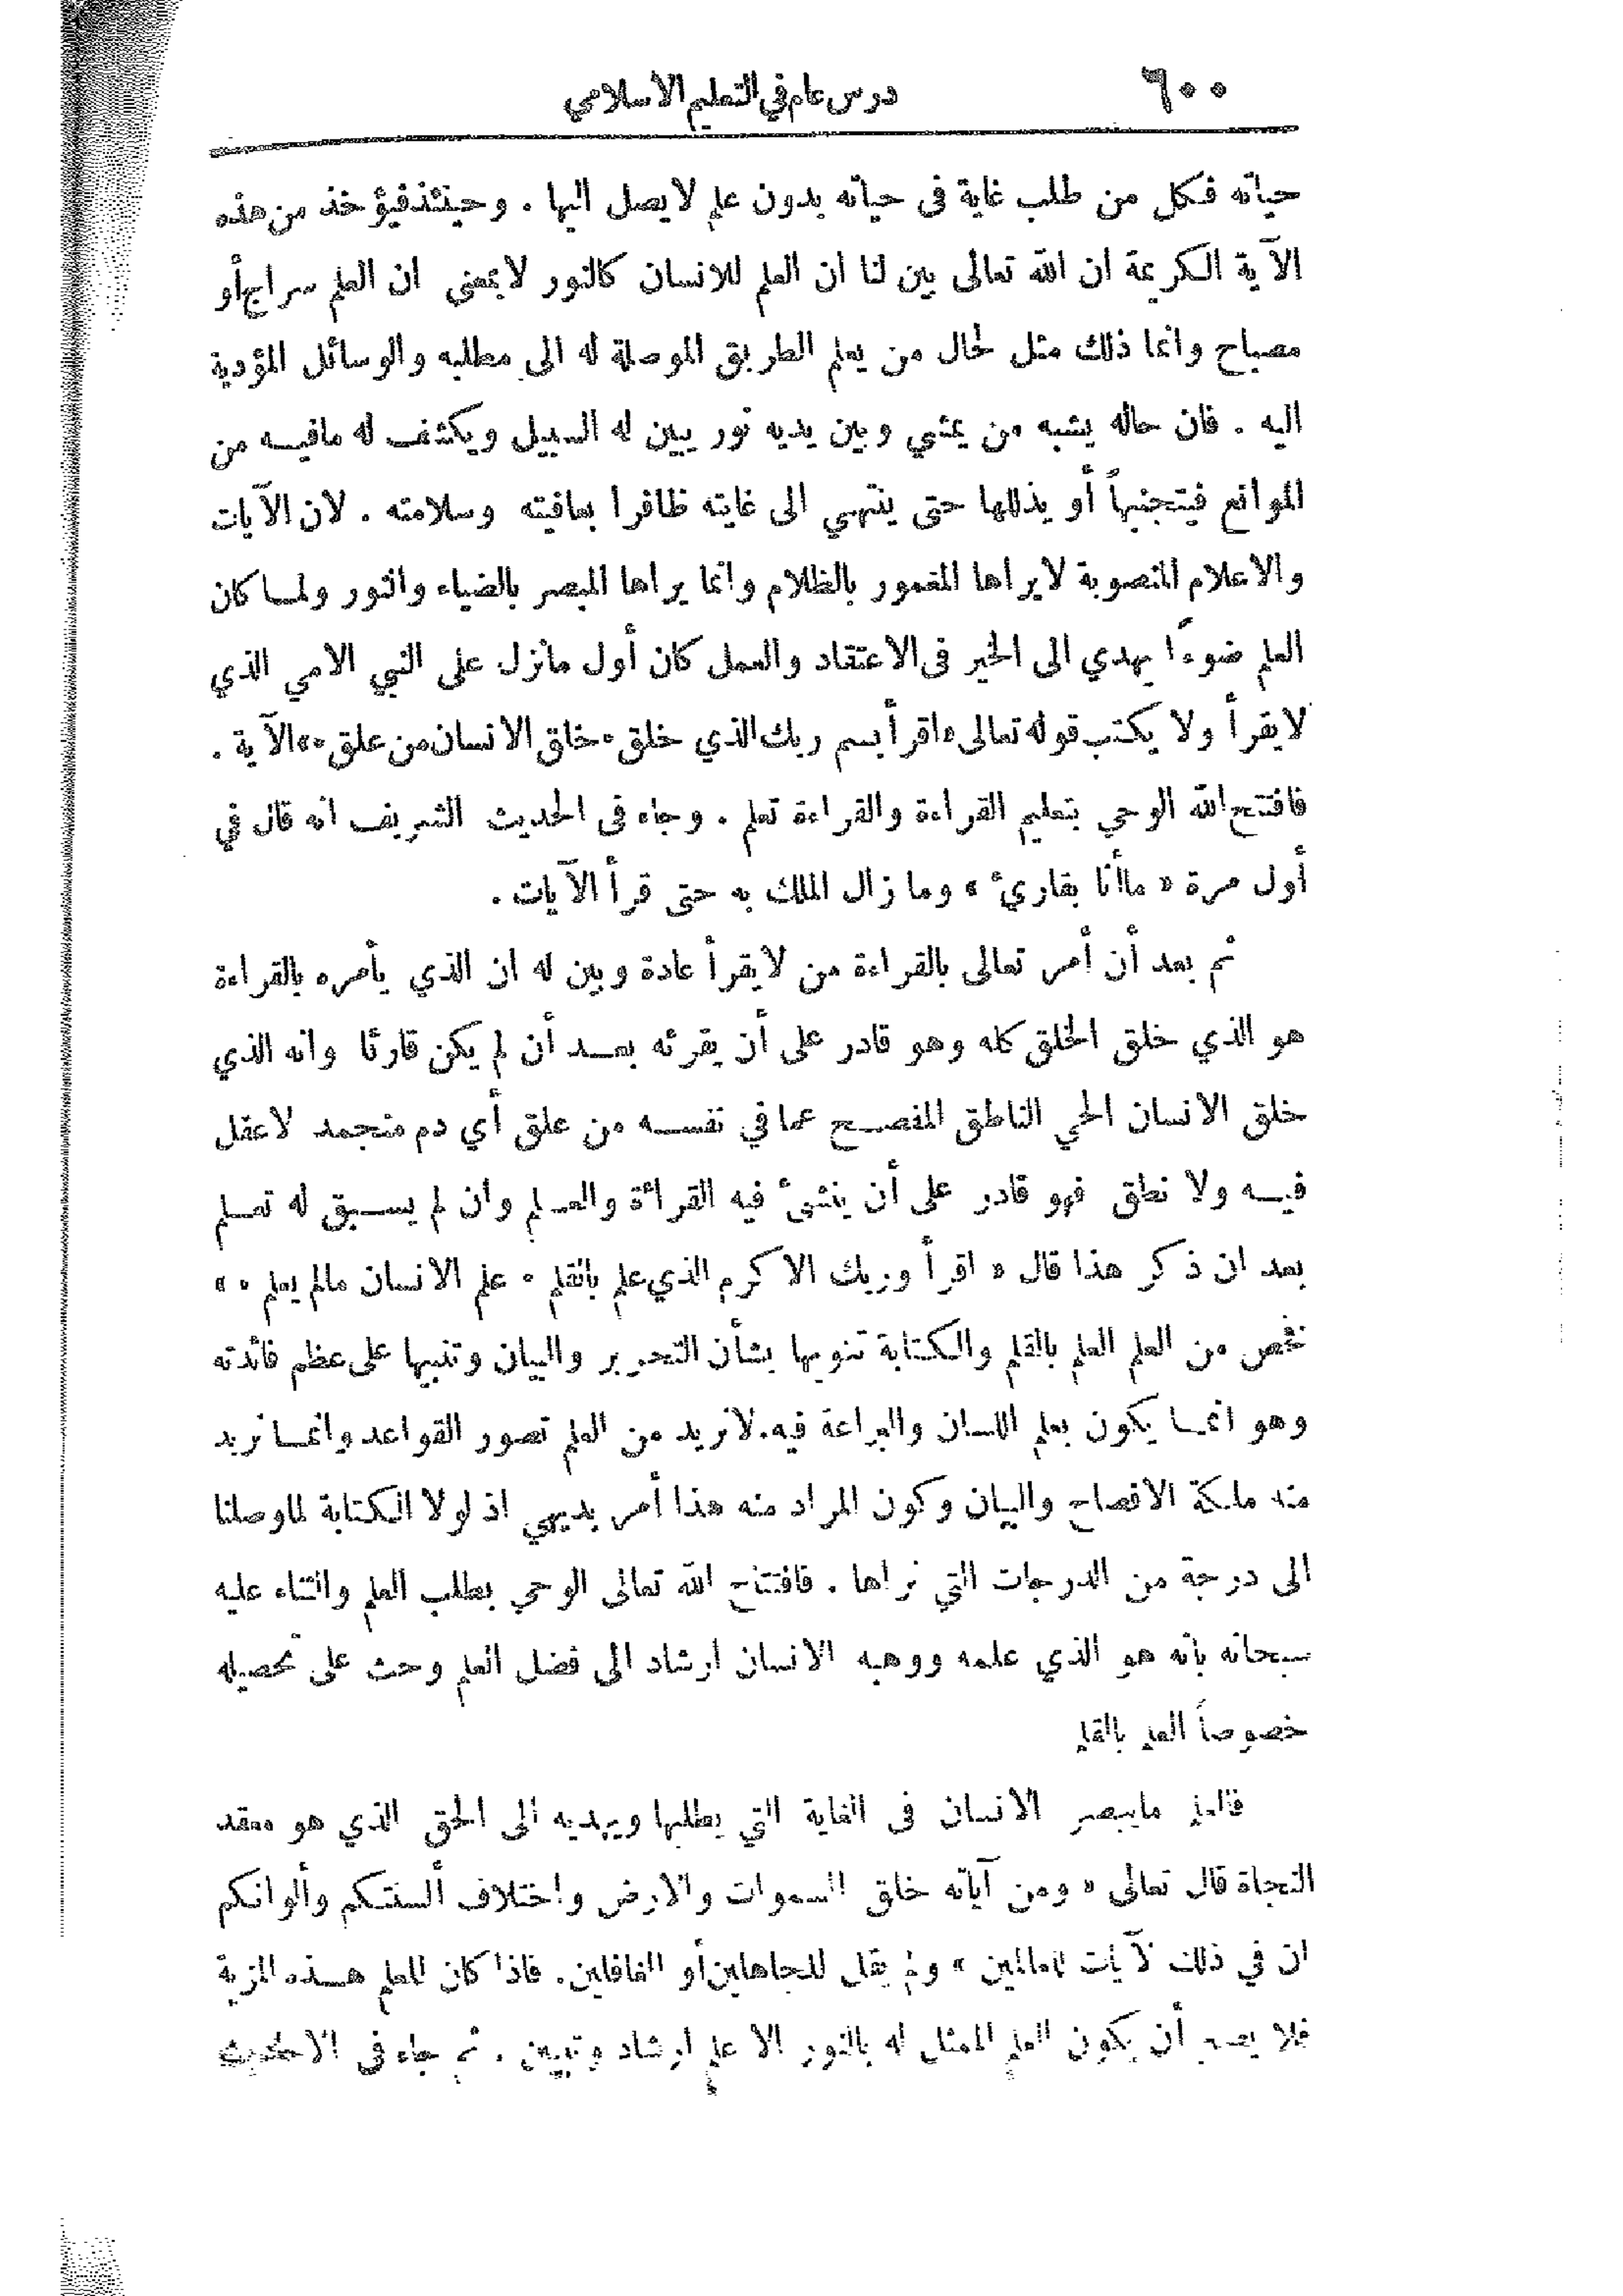 ٦٠٠
درس عام في التعليم الاسلامي
حياته فكل من طلب غاية فى حياته بدون علم لا يصل اليها . وحينئذ فيؤخذ من هذه
الآية الكريمة ان الله تعالى بين لنا ان العلم للانسان كالنور لا بمعنى ان العلم سراج أو
مصباح وانما ذلك مثل لحال من يعلم الطريق الموصلة له الى مطلبه والوسائل المؤدية
اليه . فان حاله يشبه من يمشي وبين يديه نور يبين له السبيل ويكشف له مافيه من
الموانع فيتجنبها أو يذللها حتى ينتهي الى غايته ظافرا بعافيته وسلامته . لان الآيات
والاعلام المنصوبة لا يراها المغمور بالظلام وانما يراها المبصر بالضياء والنور ولما كان
العلم ضوءًا يهدي الى الخير فى الاعتقاد والعمل كان أول مانزل على النبي الامي الذي
لا يقرأ ولا يكتب قوله تعالى « اقرأ بسم ربك الذي خلق ٠ خلق الانسان من علق ٠ » الآية .
فافتتح الله الوحي بتعليم القراءة والقراءة تعلم . وجاء فى الحديث الشريف انه قال في
أول مرة « ماأنا بقاريء » وما زال الملك به حتى قرأ الآيات .
ثم بعد أن أمر تعالى بالقراءة من لا يقرأ عادة وبين له ان الذي يأمره بالقراءة
هو الذي خلق الخلق كله وهو قادر على أن يقرئه بعد أن لم يكن قارئا وانه الذي
خلق الانسان الحي الناطق المفصح عما في نفسه من علق أي دم متجمد لا عقل
فيه ولا نطق فهو قادر على أن ينشئ فيه القراءة والعلم وان لم يسبق له تعلم
بعد ان ذكر هذا قال « اقرأ وربك الاكرم الذي علم بالقلم ٠ علم الانسان مالم يعلم ٠ »
نخص من العلم العلم بالقلم والكتابة تنويها بشأن التحرير والبيان وتنبيها على عظم فائدته
وهو انما يكون بعلم اللسان والبراعة فيه. لا نريد من العلم تصور القواعد وانما نريد
منه ملكة الافصاح والبيان وكون المراد منه هذا أمر بديهي اذ لولا الكتابة لما وصلنا
الى درجة من الدرجات التي نراها . فافتتاح الله تعالى الوحي بطلب العلم والثناء عليه
سبحانه بانه هو الذي علمه ووهبه الانسان ارشاد الى فضل العلم وحث على تحصيله
خصوصاً العلم بالقلم
فالعلم مايبصر الانسان فى الغاية التي يطلبها ويهديه الى الحق الذي هو معقد
النجاة قال تعالى « ومن آياته خلق السموات والارض واختلاف ألسنتكم وألوانكم
ان في ذلك لآيات للعالمين » ولم يقل للجاهلين أو الغافلين. فاذا كان للعلم هذه المزية
فلا يصح أن يكون العلم الممثل له بالنور الا علم ارشاد وتبيين . ثم جاء فى الاحاديث